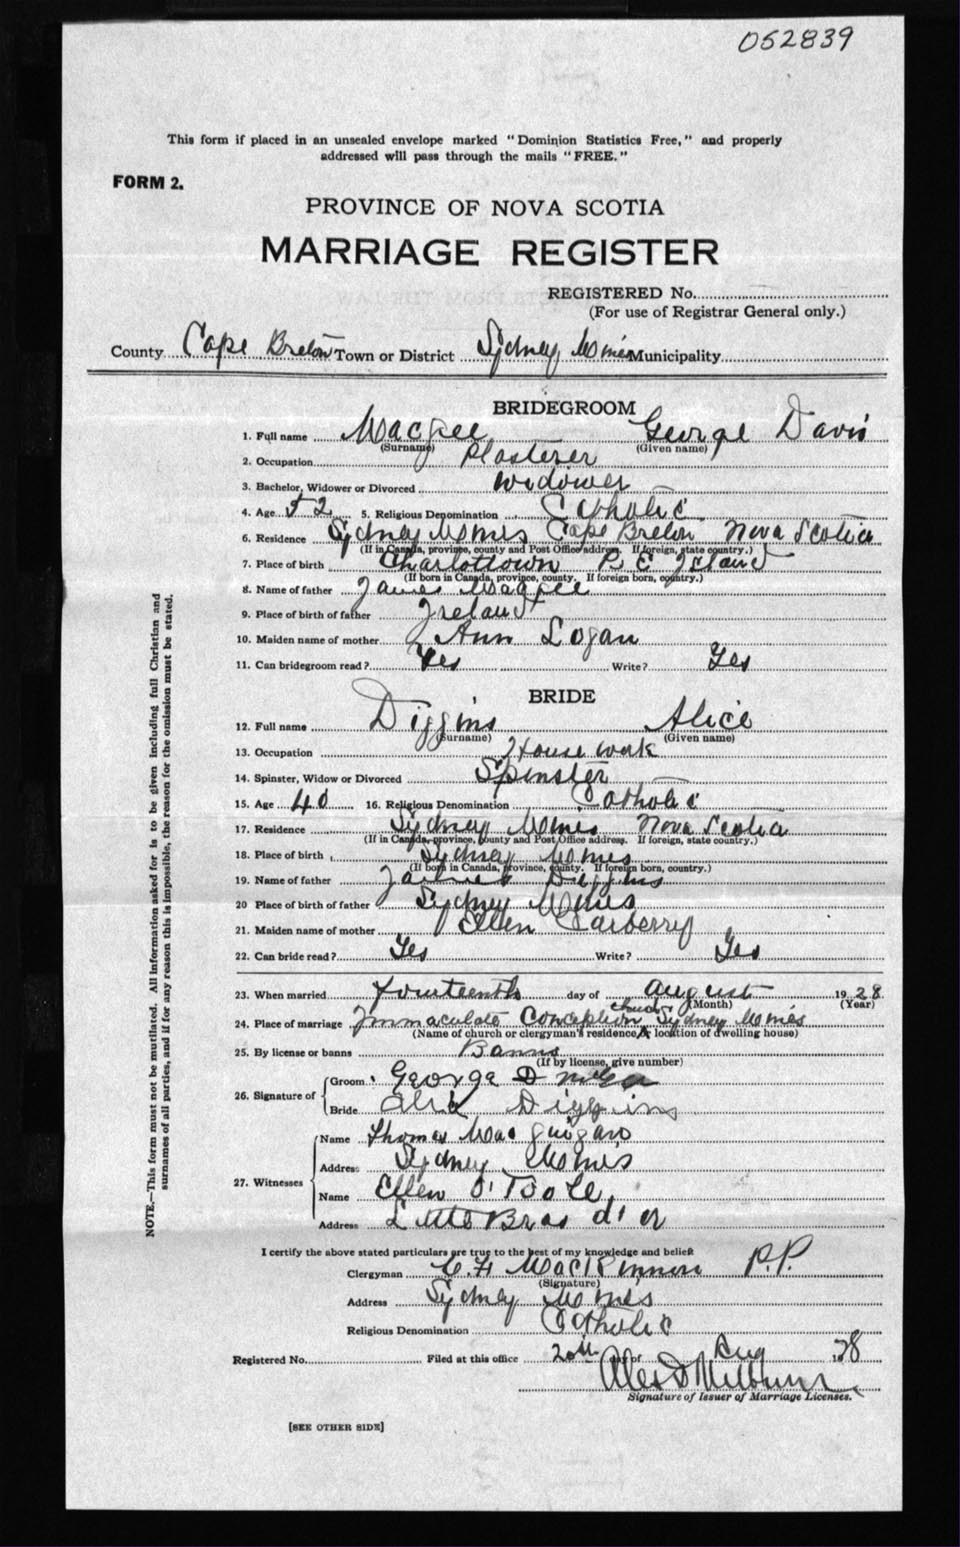 052839
This form if placed in an unsealed envelope marked "Dominion Statistics Free," and properly
addressed will pass through the mails "FREE."
FORM 2.
PROVINCE OF NOVA SCOTIA
MARRIAGE REGISTER
REGISTERED No.
(For use of Registrar General only.)
County Cape Breton Town or District Sydney Mines Municipality
BRIDEGROOM
1. Full name Macgee George Davis
(Surname) (Given name)
2. Occupation Plasterer
3. Bachelor, Widower or Divorced Widower
4. Age 52 5. Religious Denomination Catholic
6. Residence Sydney Mines Cape Breton Nova Scotia
(If in Canada, province, county and Post Office address. If foreign, state country.)
7. Place of birth Charlottown P E Island
(If born in Canada, province, county. If foreign born, country.)
8. Name of father James Macgee
9. Place of birth of father Ireland
10. Maiden name of mother Ann Logan
11. Can bridegroom read? Yes Write? Yes
BRIDE
12. Full name Diggins Alice
(Surname) (Given name)
13. Occupation House work
14. Spinster, Widow or Divorced Spinster
15. Age 40 16. Religious Denomination Catholic
17. Residence Sydney Mines Nova Scotia
(If in Canada, province, county and Post Office address. If foreign, state country.)
18. Place of birth Sydney Mines
(If born in Canada, province, county. If foreign born, country.)
19. Name of father James Diggins
20 Place of birth of father Sydney Mines
21. Maiden name of mother Ellen Carberry
22. Can bride read? Yes Write? Yes
23. When married fourteenth day of August 1928
(Month) (Year)
24. Place of marriage Immaculate Conception church Sydney Mines
(Name of church or clergyman's residence, location of dwelling house)
25. By license or banns Banns
(If by license, give number)
26. Signature of Groom George D
Bride Alice Diggins
27. Witnesses Name Thomas
Address Sydney Mines
Name Ellen O'Toole
Address Little Bras d'or
I certify the above stated particulars are true to the best of my knowledge and belief
Clergyman MacKinnon P.P.
(Signature)
Address Sydney Mines
Religious Denomination Catholic
Registered No. Filed at this office 20th day of Aug 1928
Alex D
Signature of Issuer of Marriage Licenses.
[SEE OTHER SIDE]
NOTE.—This form must not be mutilated. All information asked for is to be given including full Christian and
surnames of all parties, and if for any reason this is impossible, the reason for the omission must be stated.